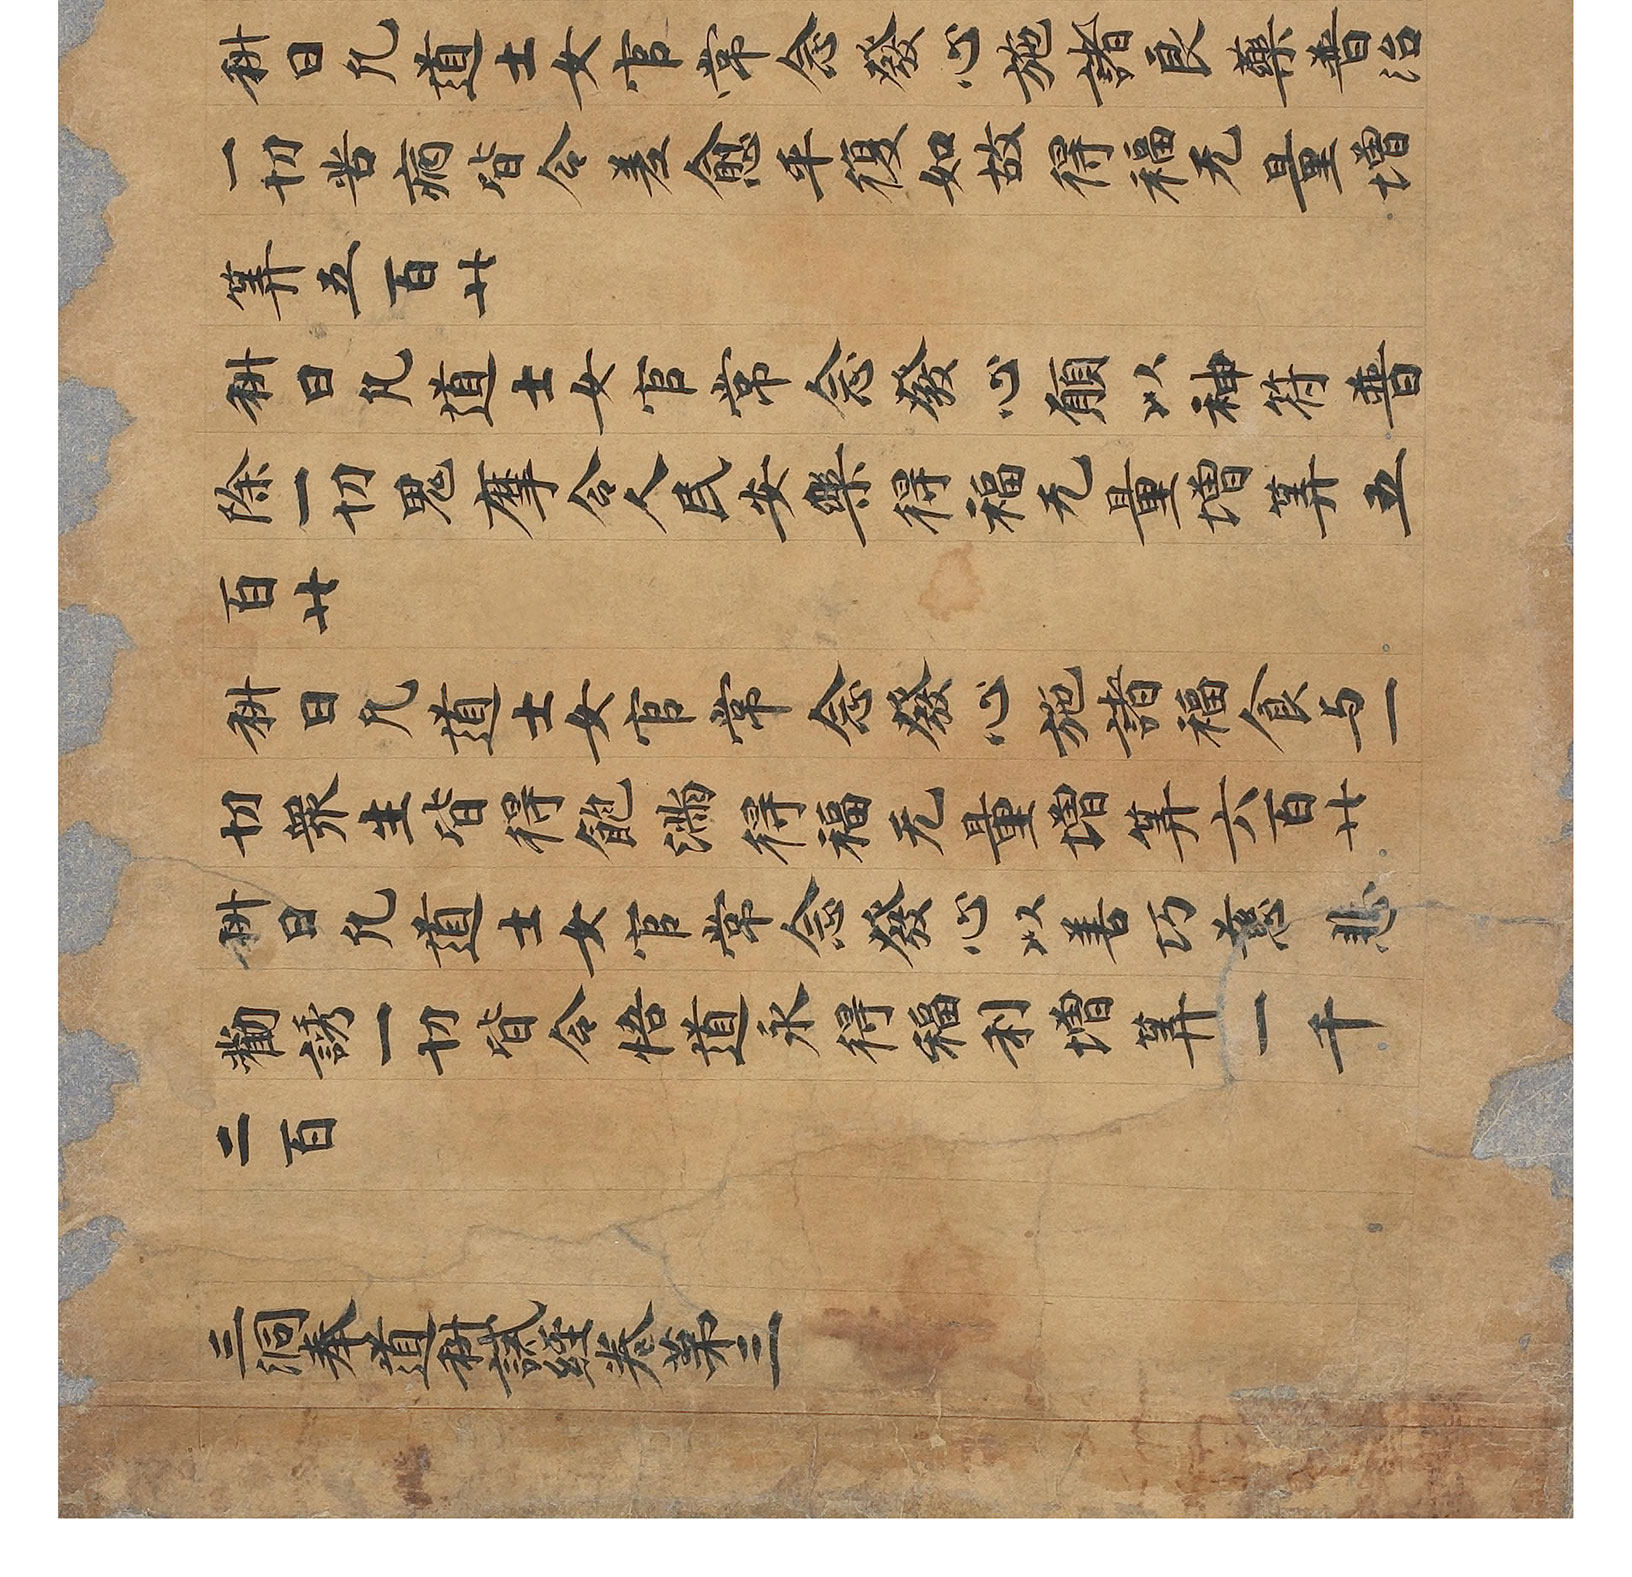 科曰凡道士女官常念發心施諸良藥普治
一切苦病皆令差愈平復如故得福无量增
筭五百廿
科曰凡道士女官常念發心願以神符普
除一切鬼摩令人民安樂得福无量增筭五
百廿
科曰凡道士女官常念發心施諸福食与一
切衆生皆得飽滿得福无量增筭六百廿
科曰凡道士女官常念發心以善巧慈悲
勸誘一切皆令悟道永得福利增筭一千
二百
三洞奉道科誡經卷第三